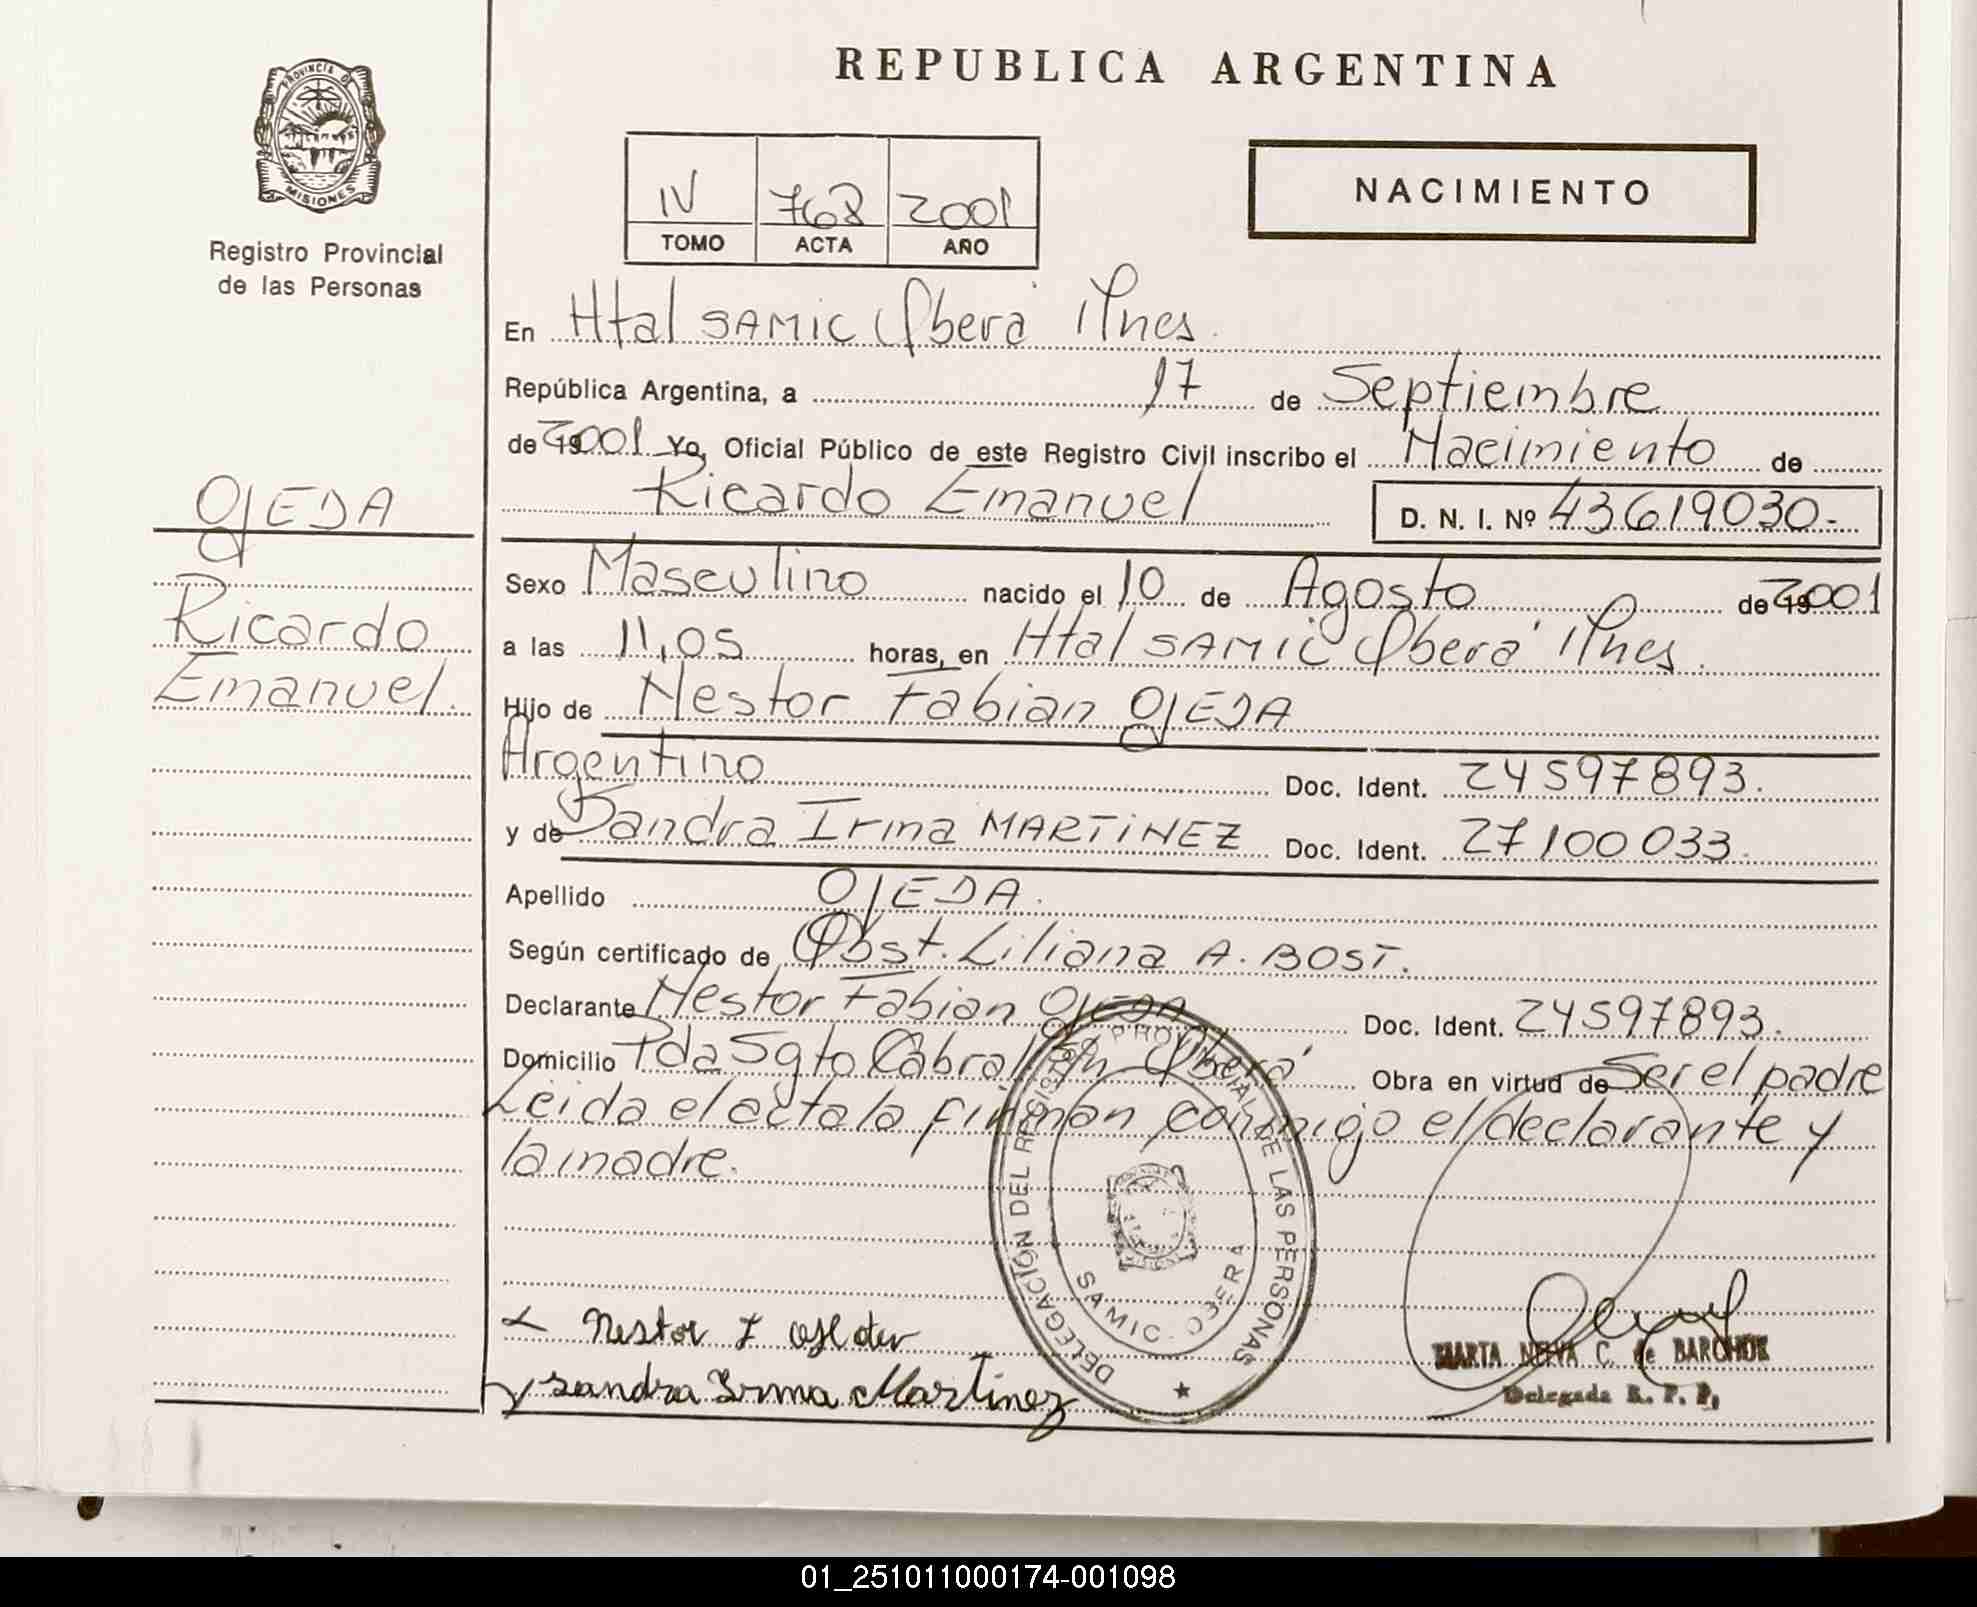 REPUBLICA ARGENTINA
PROVINCIA DE MISIONES
Registro Provincial
de las Personas
IV 768 2001
TOMO ACTA AÑO
NACIMIENTO
En Htal SAMIC Oberá Mnes.
República Argentina, a 17 de Septiembre
de 2001 Yo, Oficial Público de este Registro Civil inscribo el Nacimiento de
Ricardo Emanuel D. N. I. Nº 43619030-
OJEDA
Ricardo
Emanuel.
Sexo Masculino nacido el 10 de Agosto de 2001
a las 11,05 horas, en Htal SAMIC Oberá Mnes.
Hijo de Nestor Fabian OJEDA
Argentino Doc. Ident. 24597893.
y de Sandra Irma MARTINEZ Doc. Ident. 27100033.
Apellido OJEDA.
Según certificado de Obst. Liliana A. BOST.
Declarante Nestor Fabian OJEDA Doc. Ident. 24597893.
Domicilio Pda Sgto Cabral Oberá Obra en virtud de Ser el padre
Leida el acta la firman conmigo el declarante y
la madre.
DELEGACIÓN DEL REGISTRO PROVINCIAL DE LAS PERSONAS
SAMIC. OBERA
Nestor F Ojeda
Sandra Irma Martinez
MARTA C. de
Delegada R. P. P.
01_251011000174-001098